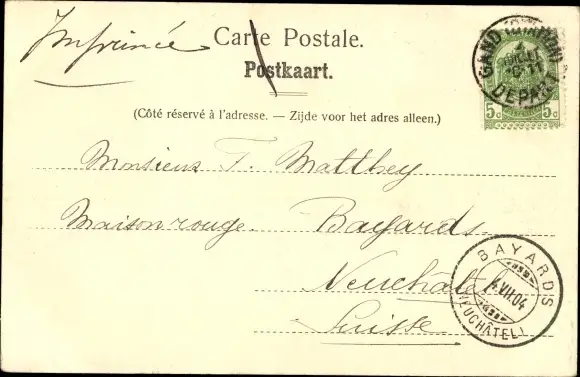 Imprimé
Carte Postale.
Postkaart.
(Côté réservé à l'adresse. — Zijde voor het adres alleen.)
GAND
DEPART
5c 5c
Monsieur F. Matthey
Maisonrouge. Bayards.
Neuchâtel
Suisse
BAYARDS
4.VII.04
(NEUCHÂTEL)